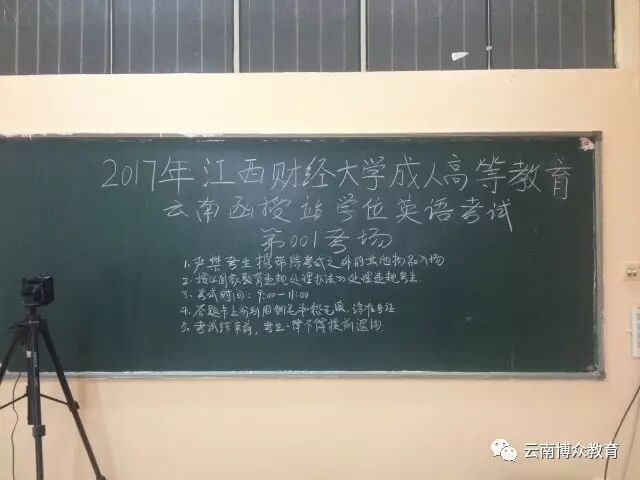 2017年江西财经大学成人高等教育
云南函授站学位英语考试
第001考场
1.严禁考生携带除考试之外的其他物品入场
2.按《国家教育违规处理办法》处理违规考生.
3.考试时间:9:00—11:00
4.答题卡上分别用钢笔和铅笔填涂准考证
5.考试结束前,考生一律不得提前退场.
云南博众教育